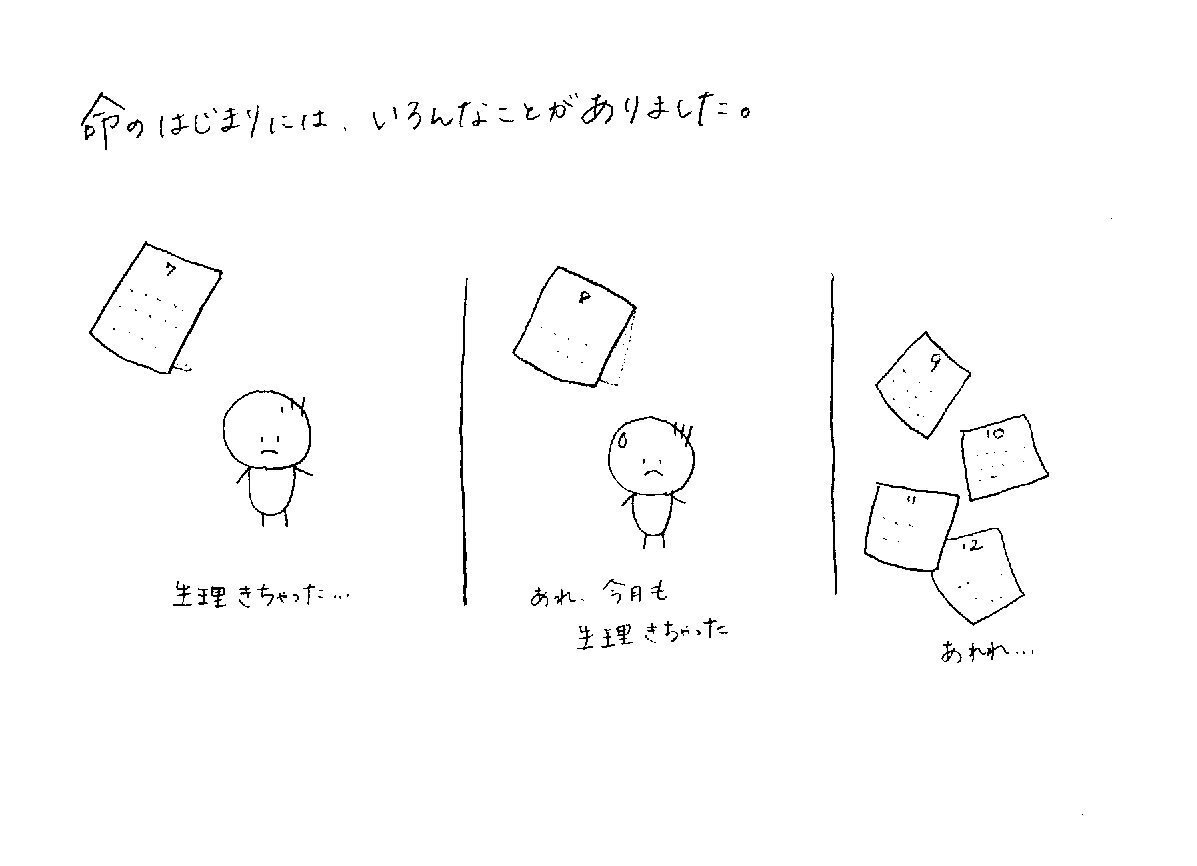 命のはじまりには、いろんなことがありました。
7
生理きちゃった…
8
あれ、今月も
生理きちゃった
9
10
11
12
あれれ…